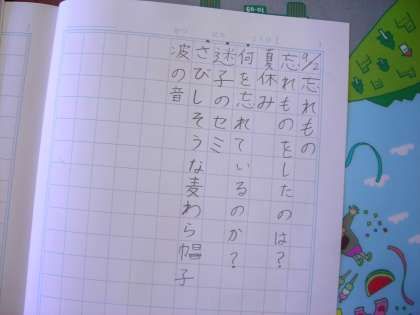 9/2忘れもの
忘れものをしたのは?
夏休み
何を忘れているのか?
迷子のセミ
さびしそうな麦わら帽子
波の音